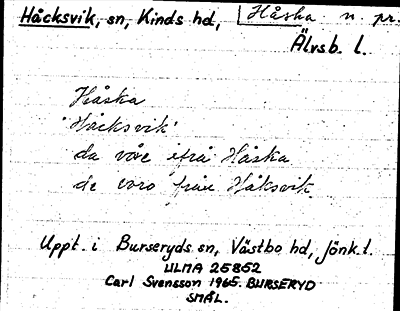 Håcksvik, sn, Kinds hd, Håska n. pr.
Älvsb. l.
Håska
'Håcksvik'
da våre ifrå Håska
de voro från Håksvik.
Uppt. i Burseryds sn, Västbo hd, Jönk. l.
ULMA 25852
Carl Svensson 1965. BURSERYD
SMÅL.